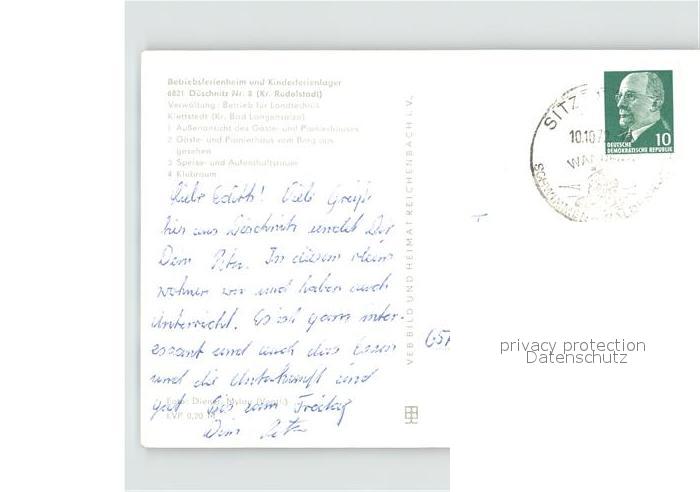 Betriebsferienheim und Kinderferienlager
6821 Döschnitz Nr. 8 (Kr. Rudolstadt)
Verwaltung: Betrieb für Landtechnik
Klettstedt (Kr. Bad Langensalza)
1 Außenansicht des Gäste- und Pionierhauses
2 Gäste- und Pionierhaus vom Berg aus
gesehen
3 Speise- und Aufenthaltsraum
4 Klubraum
Liebe Edith! Viele Grüße
hier aus Döschnitz sendet Dir
Dein Peter. In diesem Heim
wohnen wir und haben auch
Unterricht. Es ist ganz inter-
essant und auch das Essen
und die Unterkunft sind
gut. Bis zum Freitag
Dein Peter
Foto: Dienst
EVP 0,20
VEB BILD UND HEIMAT REICHENBACH i. V.
SITZE
10.10.72
WAN
SCHWIMMEN
10
DEUTSCHE
DEMOKRATISCHE REPUBLIK
privacy protection
Datenschutz